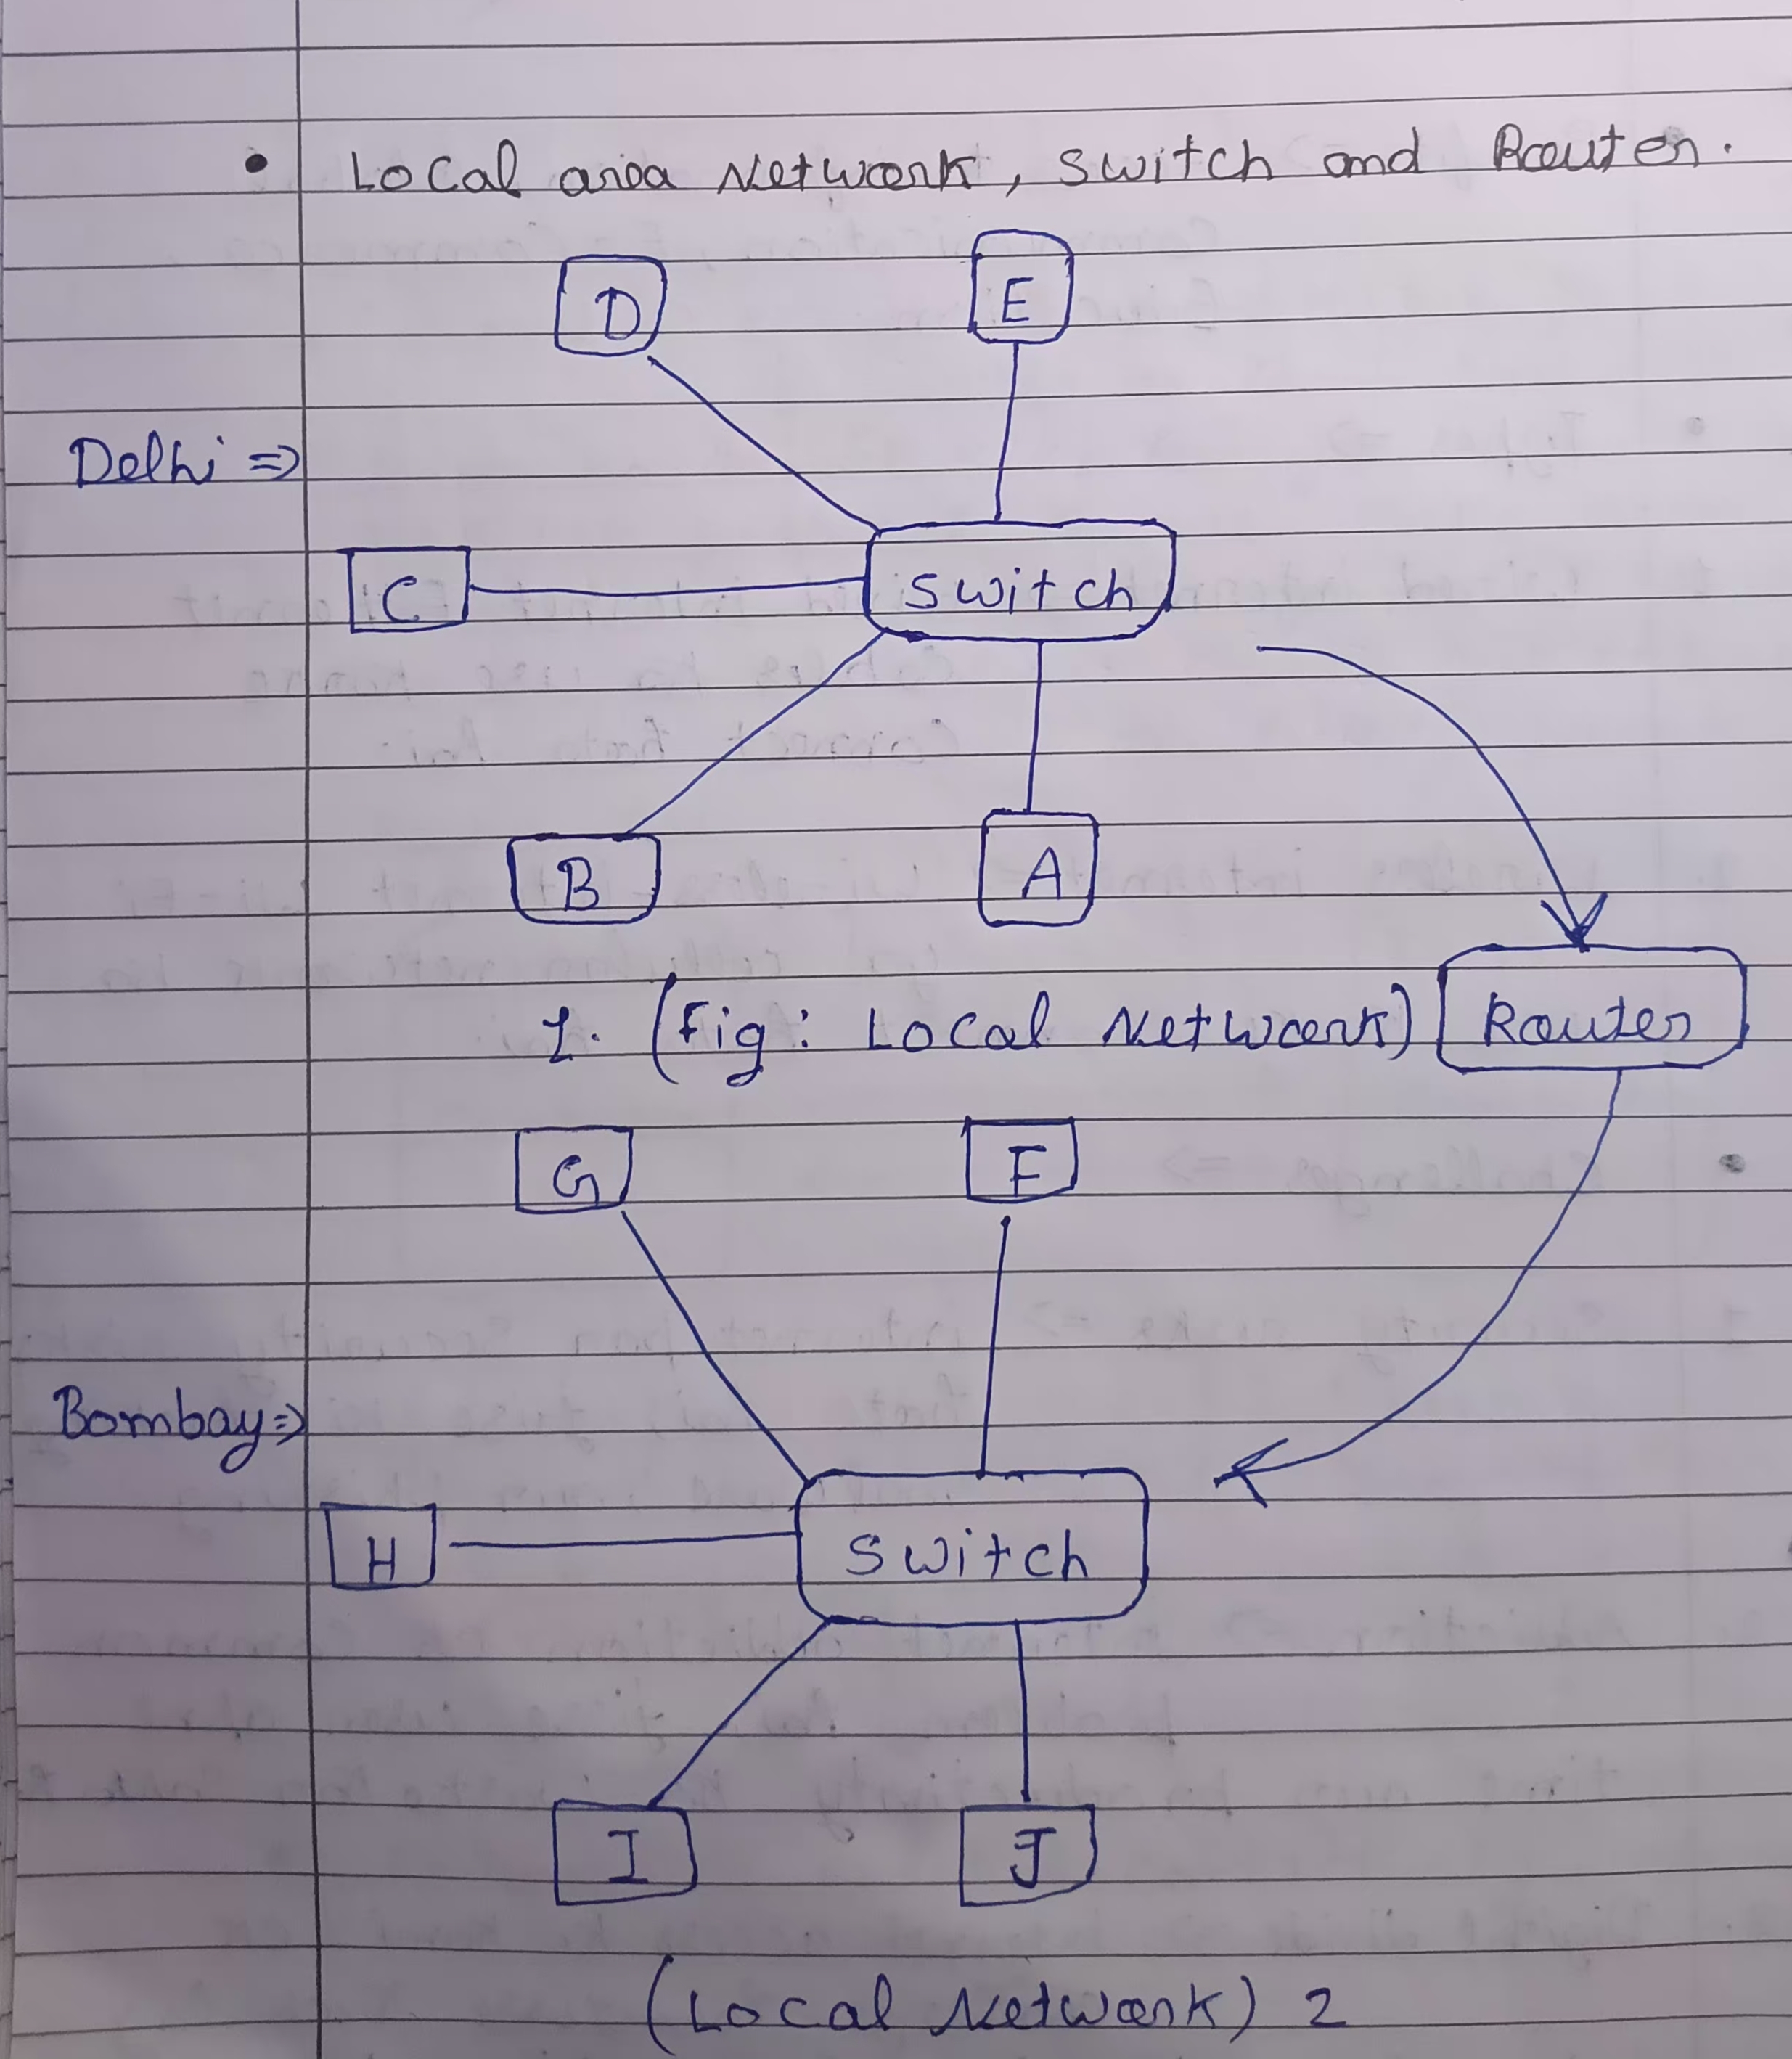 • Local area Network, Switch and Router.
D
E
Delhi ⇒
C
Switch
B
A
1. (Fig: Local Network)
Router
G
F
Bombay ⇒
H
Switch
I
J
(Local Network) 2